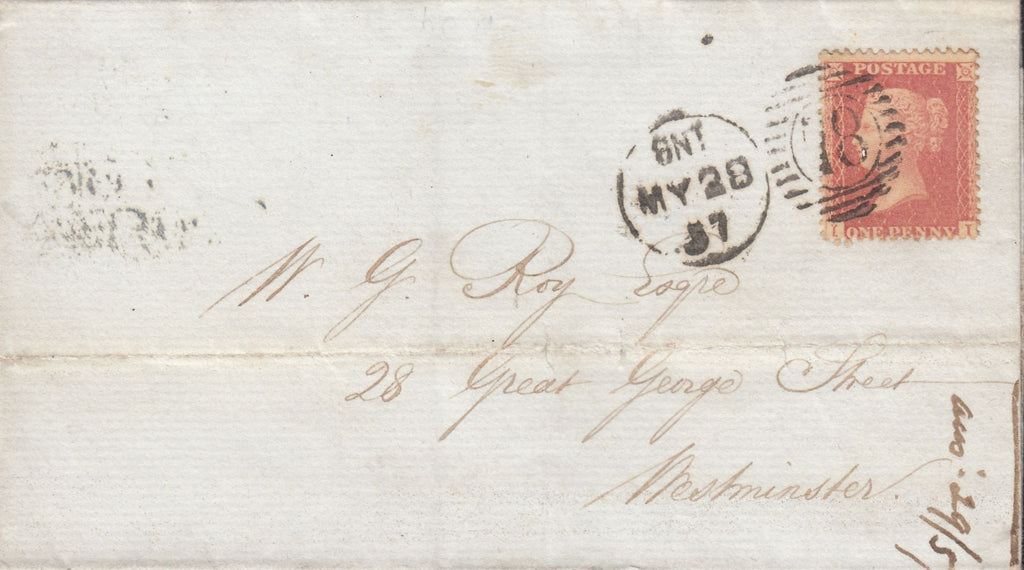 POSTAGE
18
ONE PENNY
I I
MY 28
57
W. G. Roy Esqre
28 Great George Street
Westminster.
ans: 29/5